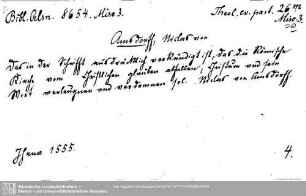 Bibl. Elsn. 8654. Misc 3.
Theol. ev. part. 26 m
Misc 3.
Amsdorff, Niclas von
Das in der Schrifft ausdrücklich verkündigt ist, das die Römische
Kirche vom Christlichen glauben abfallen, Christum und sein
Wort verleugnen und verdammen sol. Niclas von Amsdorff.
Jhena 1555.
4.